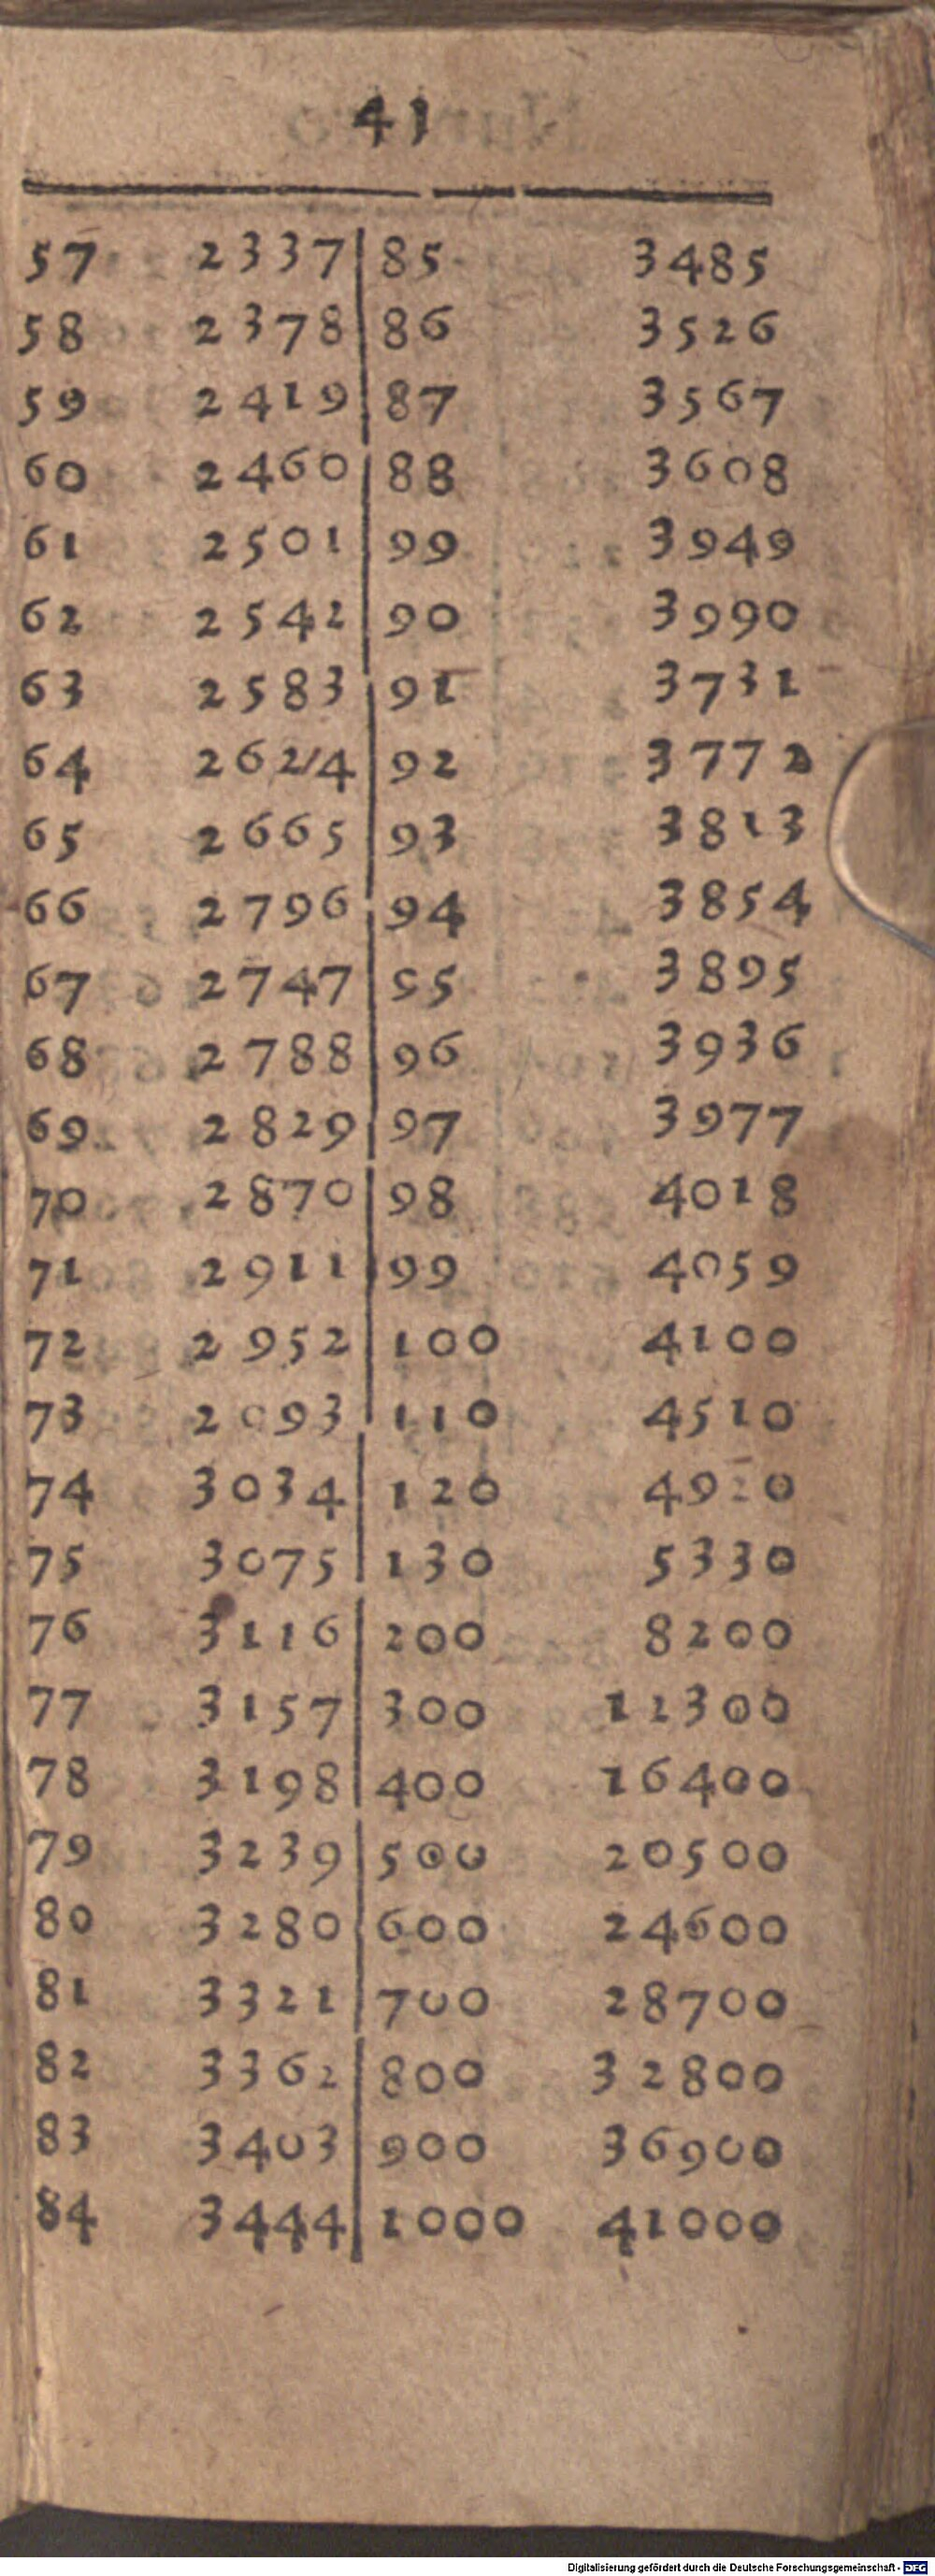 41
57 2337 85 3485
58 2378 86 3526
59 2419 87 3567
60 2460 88 3608
61 2501 99 3949
62 2542 90 3990
63 2583 91 3731
64 262/4 92 3772
65 2665 93 3813
66 2796 94 3854
67 2747 95 3895
68 2788 96 3936
69 2829 97 3977
70 2870 98 4018
71 2911 99 4059
72 2952 100 4100
73 2093 110 4510
74 3034 120 4920
75 3075 130 5330
76 3116 200 8200
77 3157 300 12300
78 3198 400 16400
79 3239 500 20500
80 3280 600 24600
81 3321 700 28700
82 3362 800 32800
83 3403 900 36900
84 3444 1000 41000
Digitalisierung gefördert durch die Deutsche Forschungsgemeinschaft - DFG